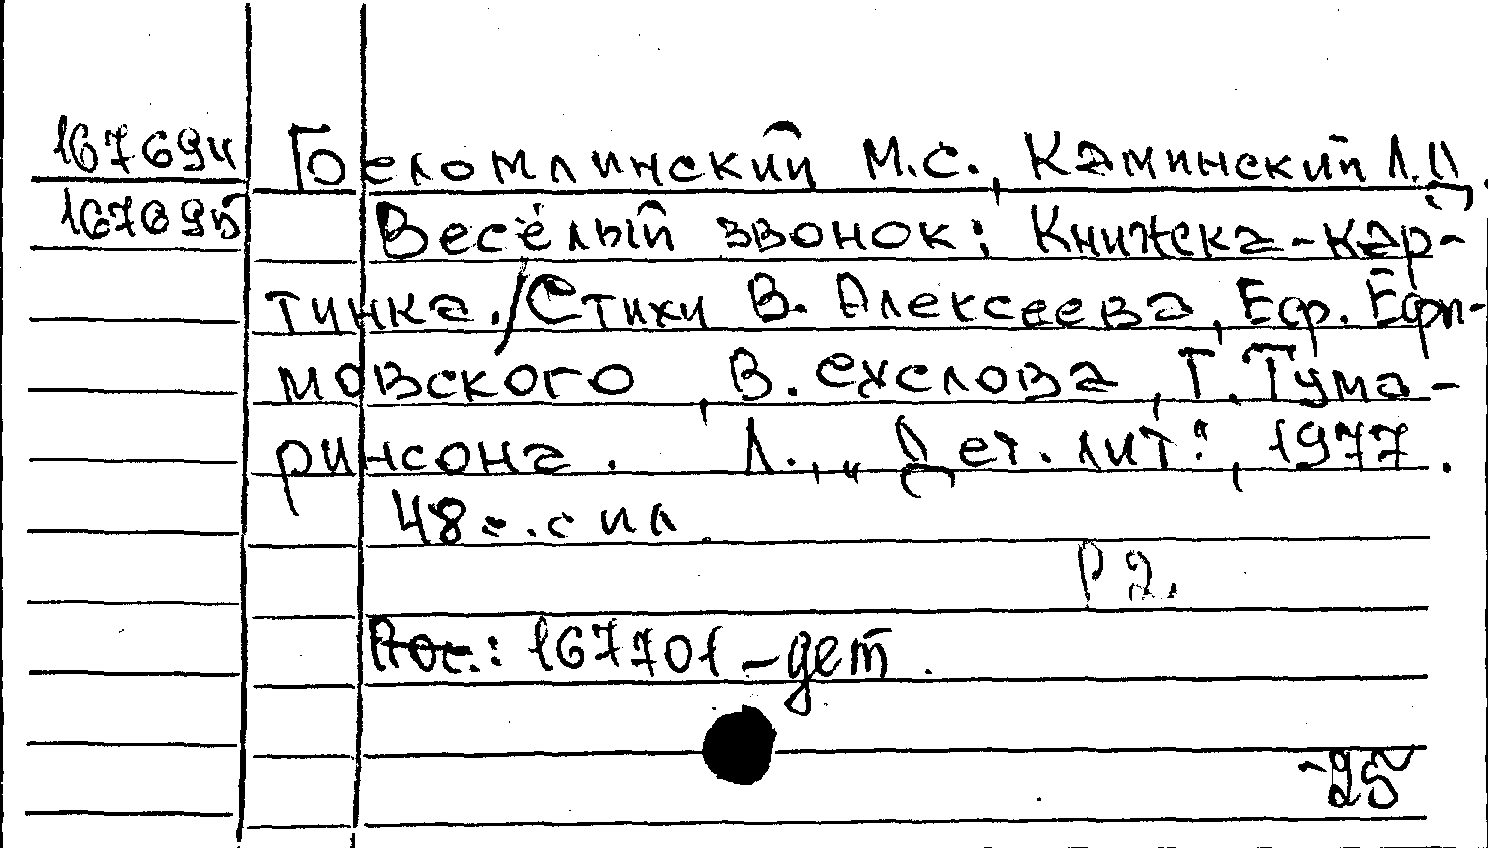 167694 Беломлинский М.С., Каминский Л.Д.
167695 Весёлый звонок: Книжка-кар-
тинка. / Стихи В. Алексеева, Еф. Ефи-
мовского, В. Суслова, Т. Тума-
ринсона. Л., „Дет. лит.", 1977.
48 с. с ил.
Р2.
Аос.: 167701 - дет.
-25